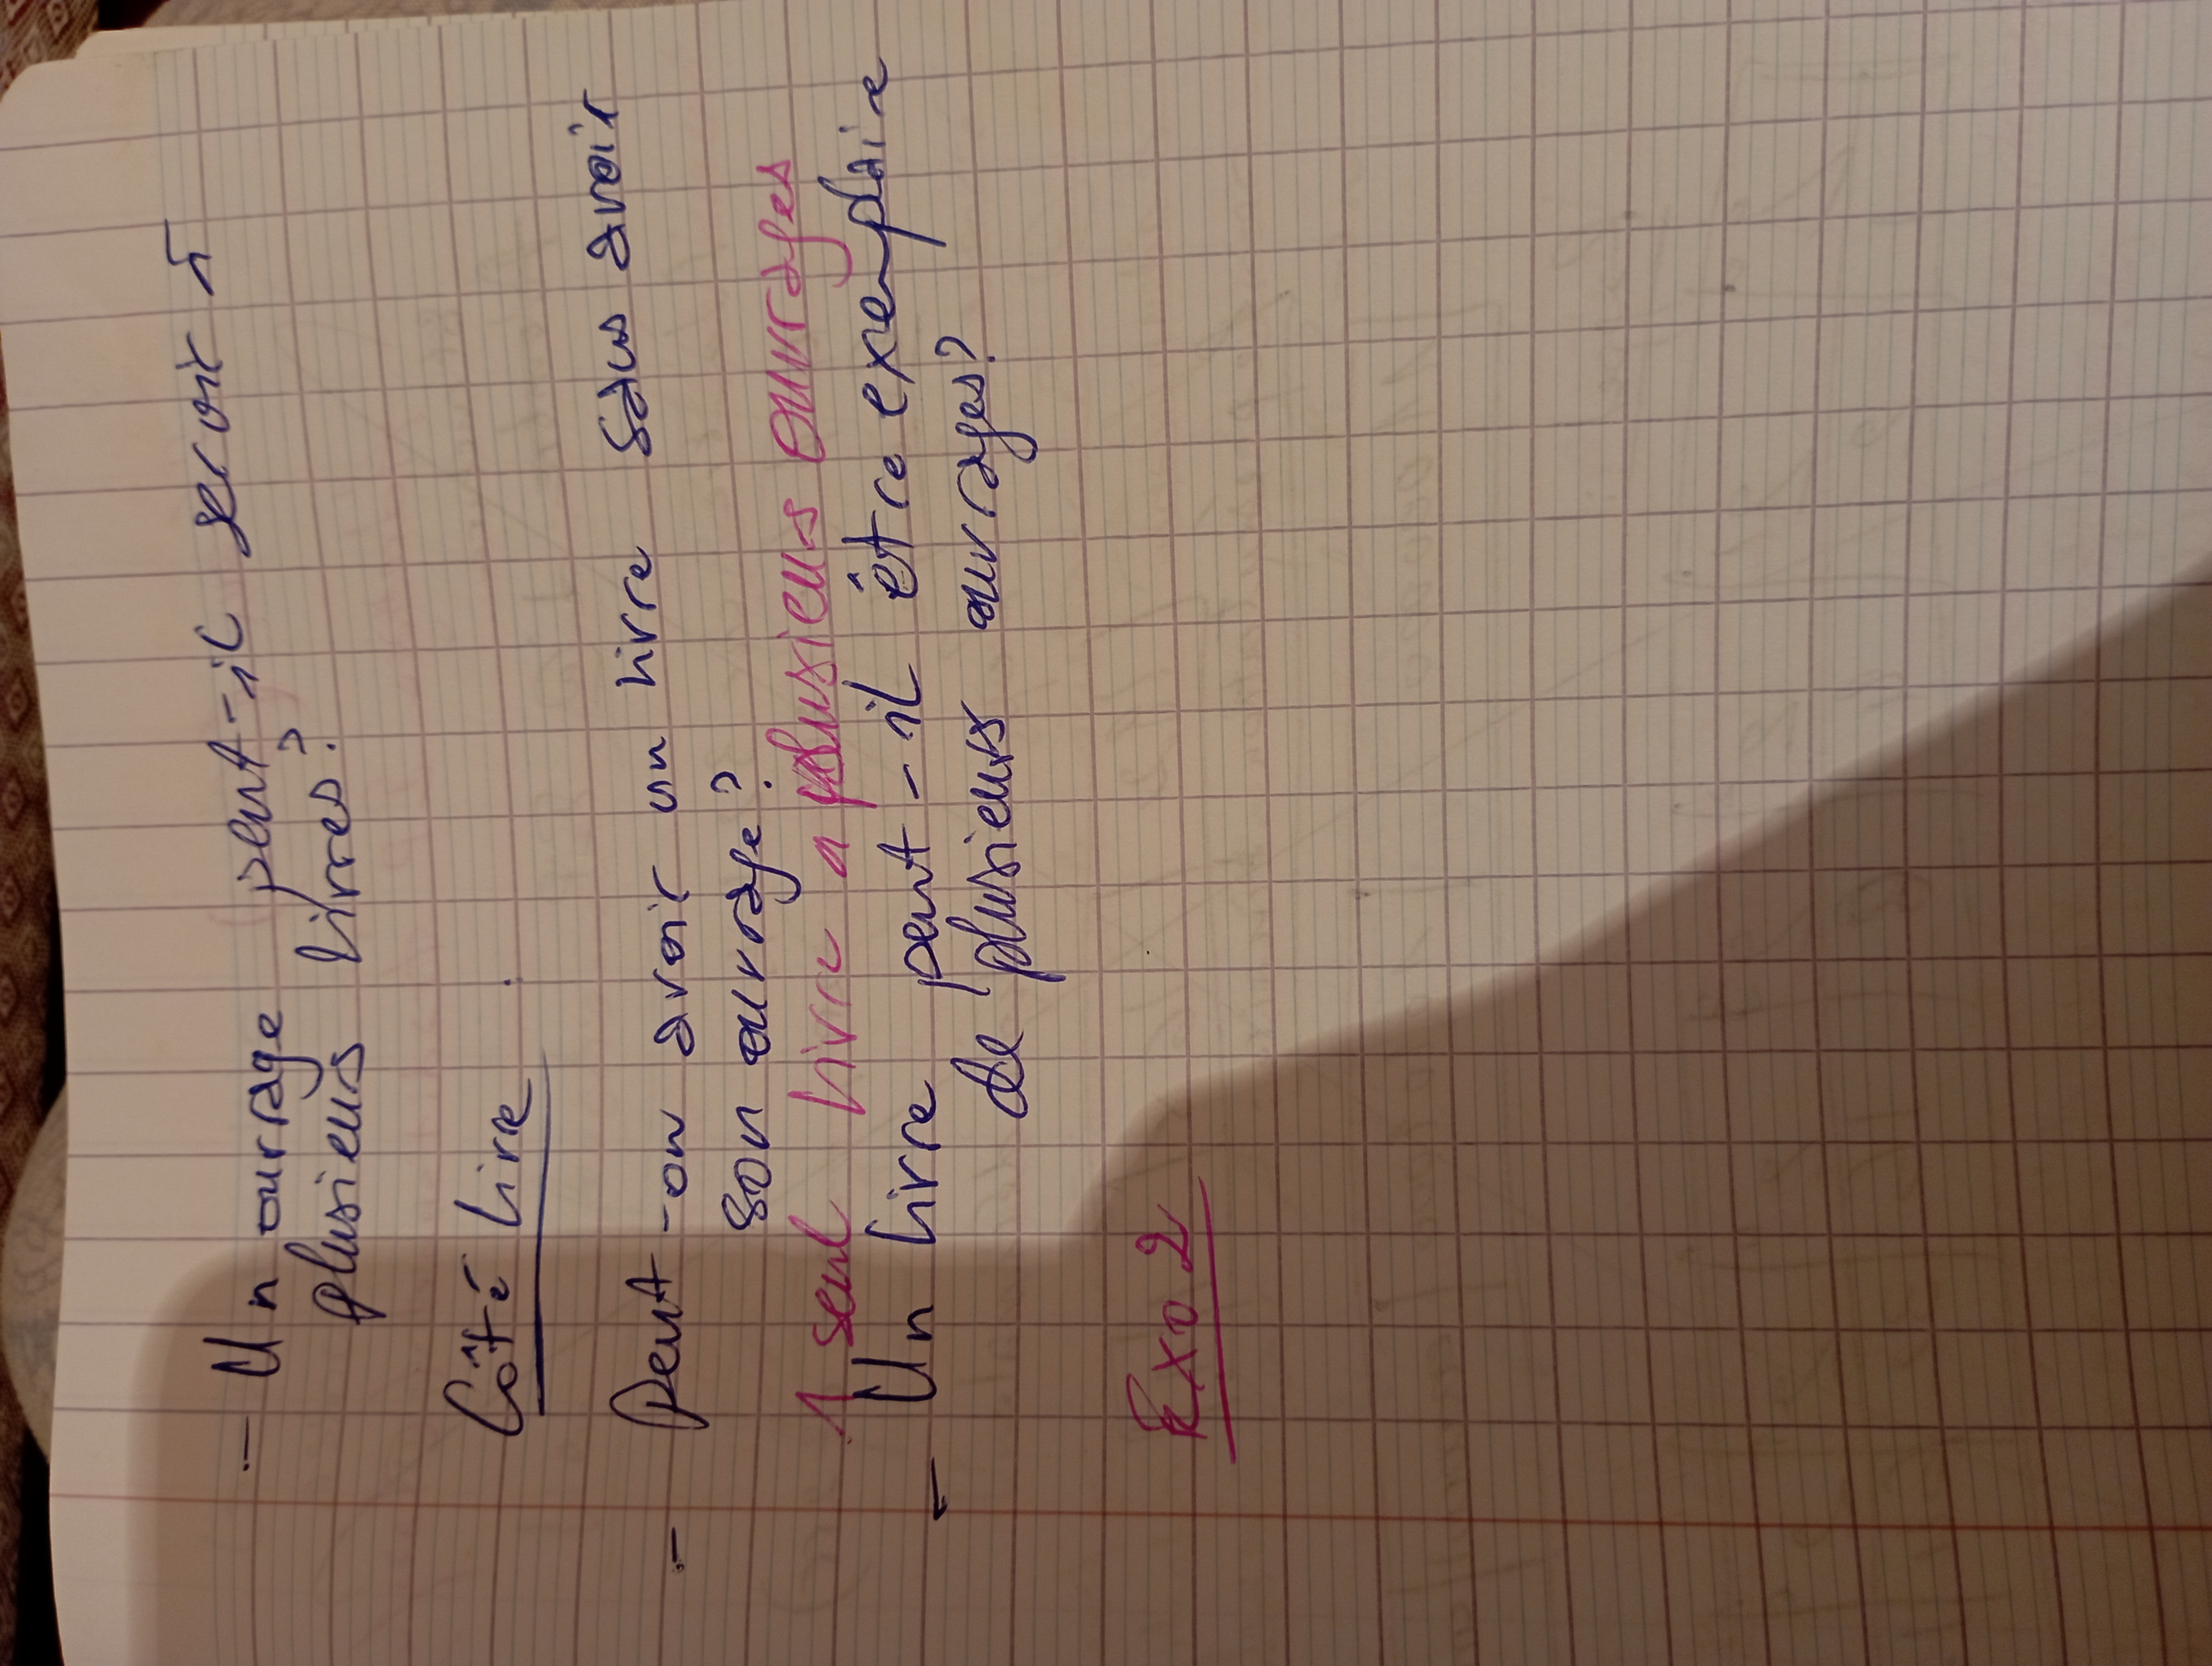 - Un ouvrage peut-il servir à
plusieurs livres?
Côté livre
- Peut-on avoir un livre sans avoir
son ouvrage?
1 seul livre a plusieurs ouvrages
- Un livre peut-il être exemplaire
de plusieurs ouvrages?
Exo 2